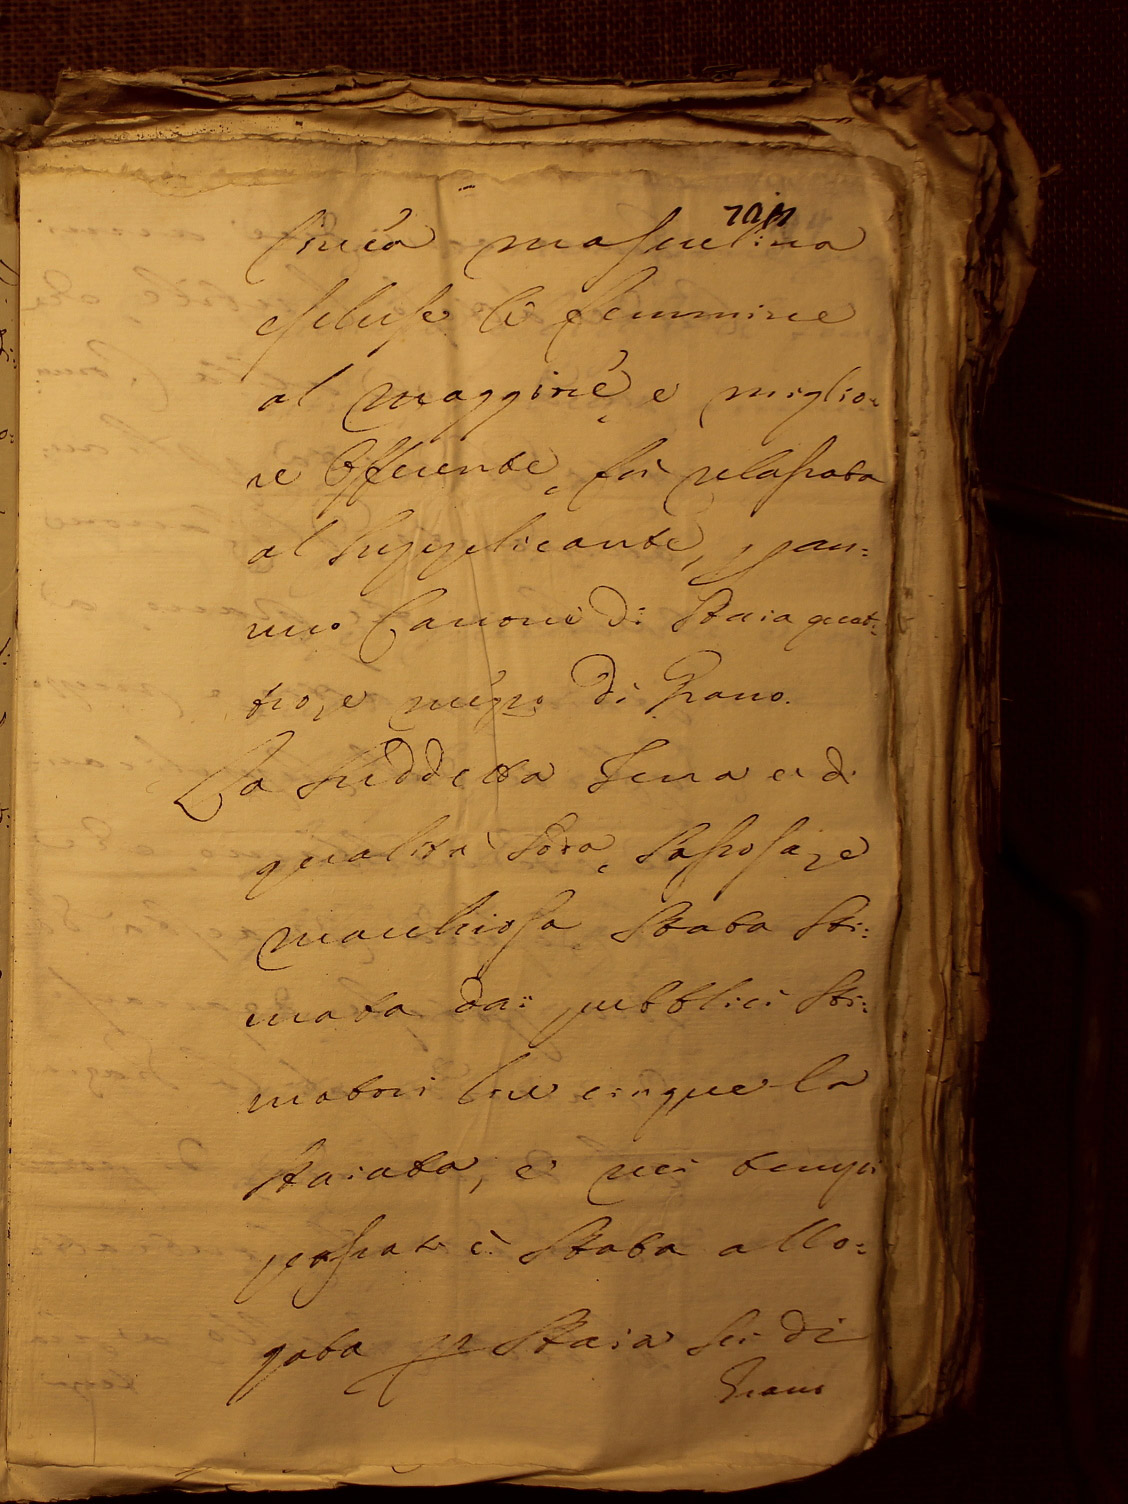 linea masculina
escluse le femmine
al maggiore, e miglio:
re Offerente, fù relassata
al Supplicante, p an:
nuo Canone di Staia quat:
tro, e mezzo di Grano.
La suddetta Terra è di
qualità soda, sassosa, e
macchiosa, stata sti:
mata dai pubblici Sti:
matori lire cinque la
staiata, e nei tempi
passati è stata allo:
gata p Staia sei di
Grano